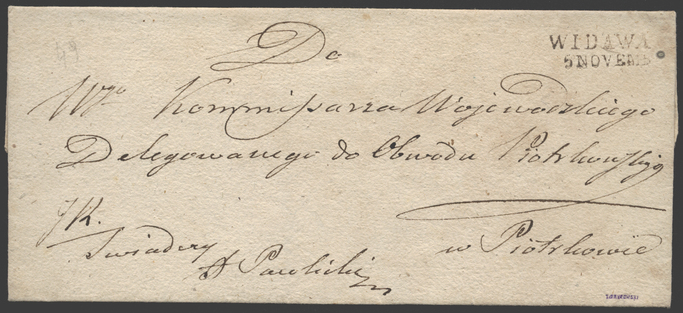 WIDAWA
5 NOVEMB
Do
Wgo Kommissarza Wojewodzkiego
Delegowanego do Obwodu Piotrkowskiego
w Piotrkowie
Swiadczy
A Pawlicki